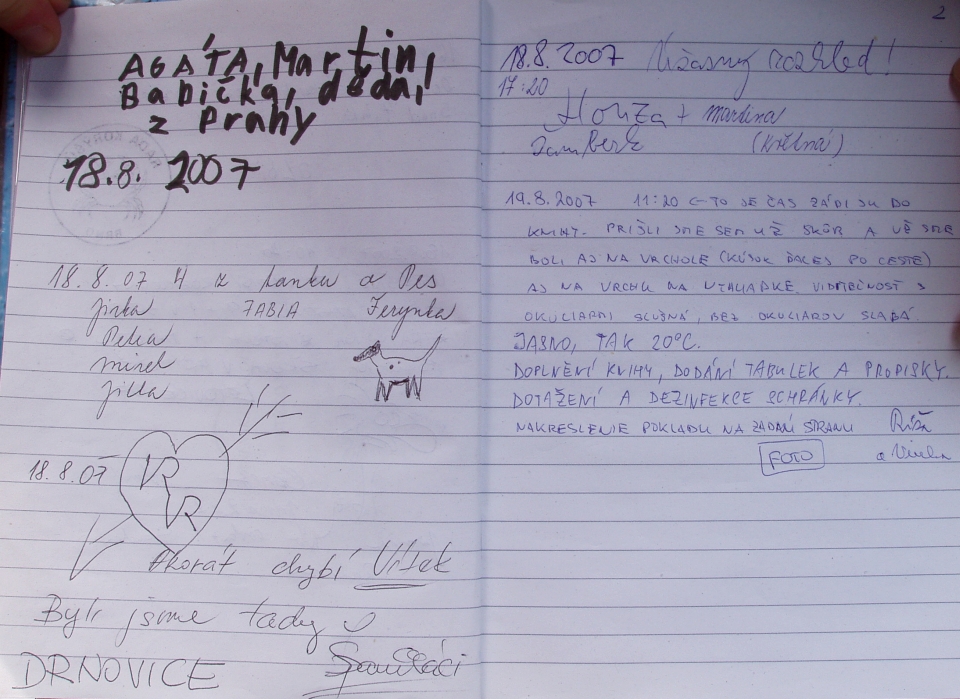 AGÁTA, Martin,
Babička, děda,
z Prahy
18.8. 2007
18.8.07 4 z Lanku a Pes
Jirka FABIA Ferynka
Petra
Mirek
Jitka
18.8.07
VR
VR
Akorát chybí Víšek
Byli jsme tady
DRNOVICE
2
18.8.2007 Úžasný rozhled!
17:20
Honza + Martina
Žamberk (Květná)
19.8.2007 11:20 ← TO JE ČAS ZÁPISU DO
KNIHY. PRIŠLI SME SEM UŽ SKÔR A UŽ SME
BOLI AJ NA VRCHOLE (KÚSOK ĎALEJ PO CESTE)
AJ NA VRCHU NA VYHLIADKE. VIDITEĽNOSŤ S
OKULIARMI SLUŠNÁ, BEZ OKULIAROV SLABÁ.
JASNO, TAK 20°C.
DOPLNĚNÍ KNIHY, DODÁNÍ TABULEK A PROPISKY.
DOTAŽENÍ A DEZINFEKCE SCHRÁNKY.
NAKRESLENIE POKLADU NA ZADNÍ STRANU Ríša
FOTO a